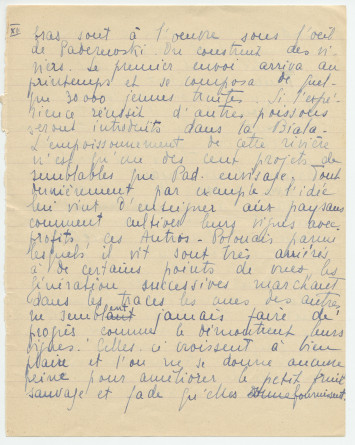 XII
bras sont à l'oeuvre sous l'oeil
de Paderewski. On construit des vi-
viers. Le premier envoi arriva au
printemps et se composa de quel-
que 30000 jeunes truites. Si l'expé-
rience réussit d'autres poissons
seront introduits dans la Biala.
L'empoissonnement de cette rivière
n'est qu'un des cent projets
semblables que Pad. envisage. Tout
dernièrement par exemple l'idée
lui vint d'enseigner aux paysans
comment cultiver leurs vignes avec
profits, ces Austro-Polonais parmi
lesquels il vit sont très arriérés
à de certains points de vues, les
génération successives marchant
dans les traces les unes des autres
ne semblent jamais faire de
progrès comme le démontrent leurs
vignes. Celles ci croissent à bien
plaire et l'on ne se donne aucune
peine pour améliorer le petit fruit
sauvage et fade qu'elles fournissent